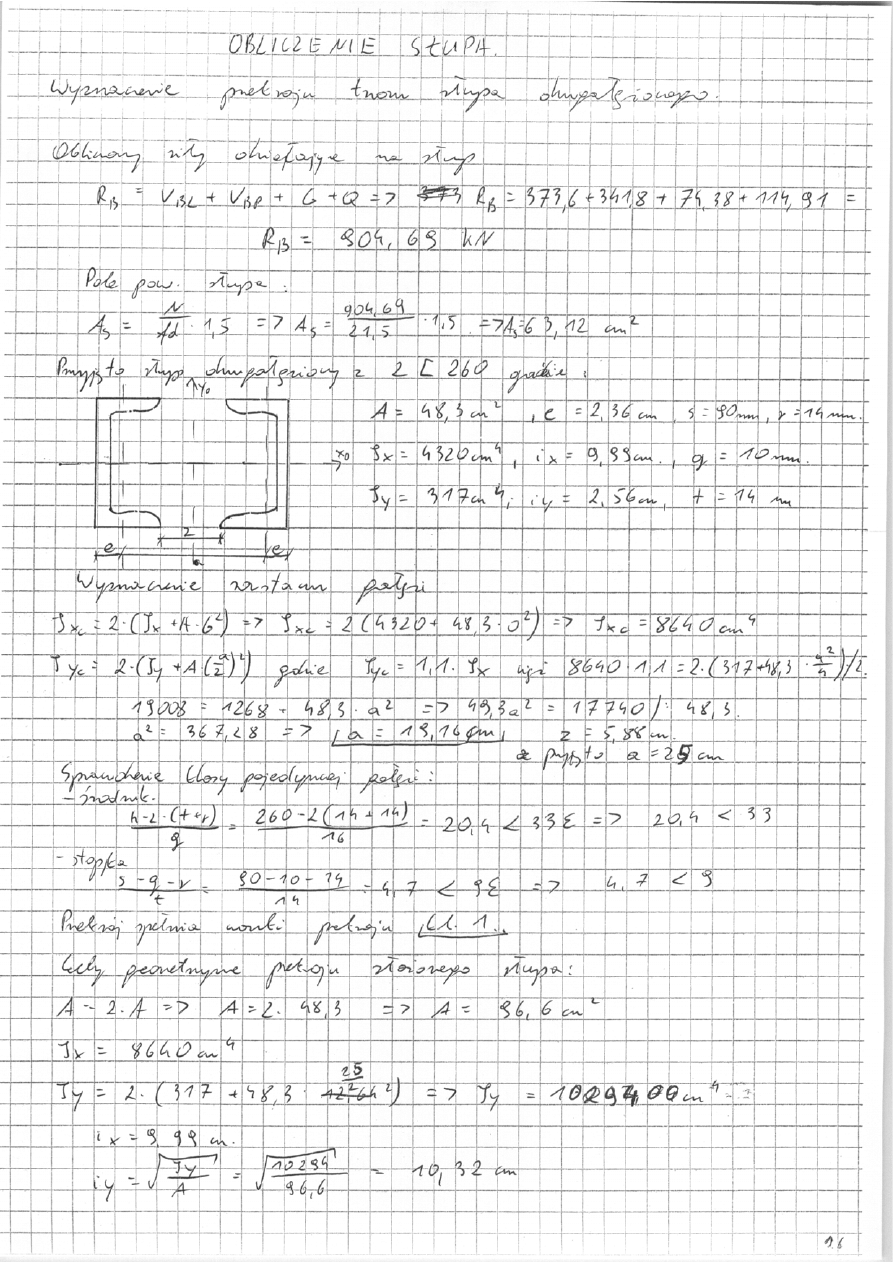 OBLICZENIE SŁUPA.
Wyznaczenie przekroju trzonu słupa dwugałęziowego.
Obliczamy siły działające na słup
R_B = V_BL + V_BP + G + Q => R_B = 373,6 + 341,8 + 74,38 + 114,91 =
R_B = 904,69 kN
Pole pow. słupa :
A_s = N/fd · 1,5 => A_s = 904,69/21,5 · 1,5 => A_s = 63,12 cm²
Przyjęto słup dwugałęziowy z 2 [ 260 gdzie :
y₀
A = 48,3 cm² , e = 2,36 cm , s = 90 mm, r = 14 mm.
x₀
Jx = 4320 cm⁴, ix = 9,99 cm. , g = 10 mm.
Jy = 317 cm⁴, iy = 2,56 cm, t = 14 mm
z
e a e
Wyznaczenie rozstawu gałęzi
Jxc = 2·(Jx + A·b²) => Jxc = 2(4320 + 48,3·0²) => Jxc = 8640 cm⁴
Jyc = 2·(Jy + A(a/2)²) gdzie Jyc = 1,1·Jx więc 8640·1,1 = 2·(317+48,3·a²/4)/·2
19008 = 1268 - 48,3 · a² => 49,3a² = 17740 /: 48,3.
a² = 367,28 => a = 19,16 cm z = 5,88 cm.
przyjęto a = 25 cm
Sprawdzenie klasy pojedynczej gałęzi :
- środnik.
h-2·(t+r)/g = 260-2(14+14)/16 = 20,4 < 33ε => 20,4 < 33
- stopka
s-g-r/t = 90-10-14/14 = 4,7 < 9ε => 4,7 < 9
Przekrój spełnia warunki przekroju kl. 1.
Cechy geometryczne przekroju złożonego słupa:
A - 2·A => A = 2· 48,3 => A = 96,6 cm²
Jx = 8640 cm⁴
25
Jy = 2·(317 + 48,3 · 12,²64²) => Jy = 10294,00 cm⁴
ix = 9,99 cm.
iy = √(Jy/A) = √(10294/96,6) = 10,32 cm
16